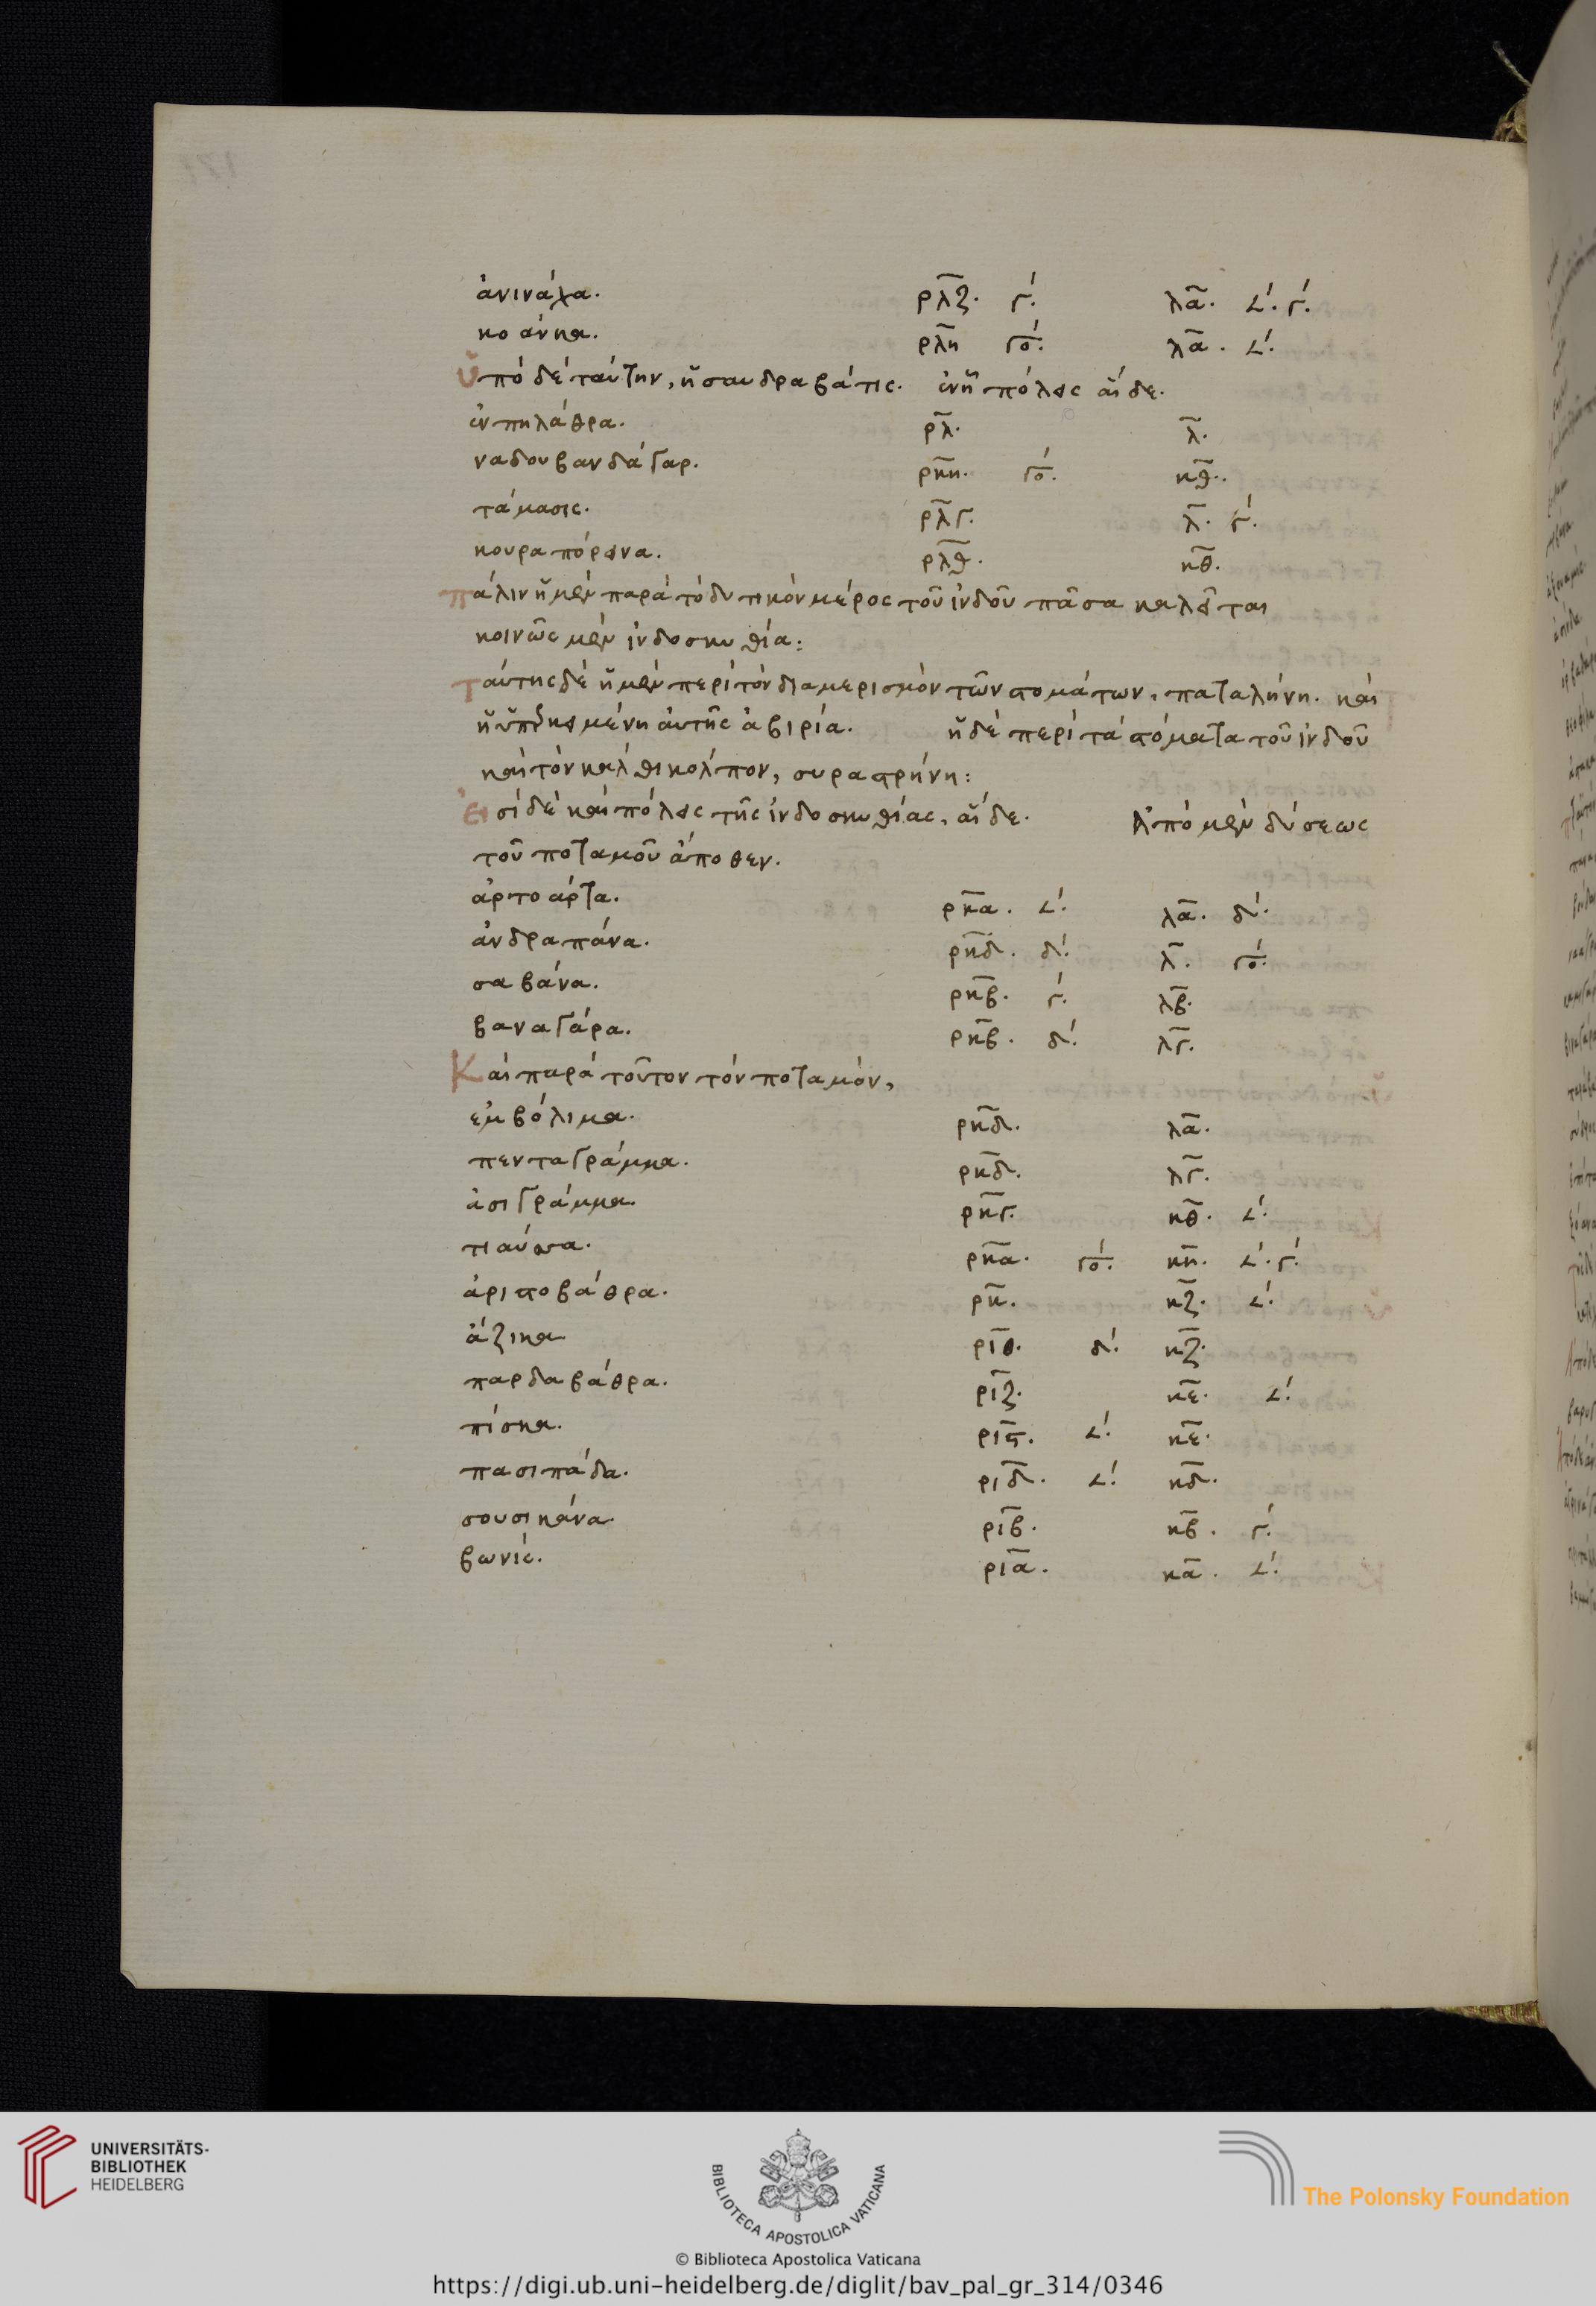 ἀνινάχα. ρλζ. γʹ. λα. 𐅵ʹ. γʹ.
κοάνκα. ρλη γοʹ. λα. 𐅵ʹ.
ὑπὸ δὲ ταύτην, ἡ σανδραβάτις. ἐν ἧ πόλεις αἵδε.
ἐνπηλάθρα. ρλ. λ.
ναδουβανδάγαρ. ρκη. γοʹ. κθ.
τάμασις. ρλγ. λ. γʹ.
κουραπόρεινα. ρλθ. κθ.
πάλιν ἡ μὲν παρὰ τὸ δυτικὸν μέρος τοῦ ἰνδοῦ πᾶσα καλεῖται
κοινῶς μὲν ἰνδοσκυθία:
ταύτης δὲ ἡ μὲν περὶ τὸν διαμερισμὸν τῶν στομάτων, παταλήνη. καὶ
ἡ ὑπερκειμένη αὐτῆς ἀβιρία. ἡ δὲ περὶ τὰ στόματα τοῦ ἰνδοῦ
καὶ τὸν κάνθι κόλπον, συραστρήνη:
Εἰσὶ δὲ καὶ πόλεις τῆς ἰνδοσκυθίας, αἵδε. Ἀπὸ μὲν δύσεως
τοῦ ποταμοῦ ἄποθεν.
ἀρτοάρτα. ρκα. 𐅵ʹ. λα. δʹ.
ἀνδραπάνα. ρκδ. δʹ. λ. γοʹ.
σαβάνα. ρκβ. γʹ. λβ.
βαναγάρα. ρκβ. δʹ. λγ.
Καὶ παρὰ τοῦτον τὸν ποταμόν,
ἐμβόλιμα. ρκδ. λα.
πενταγράμμα. ρκδ. λγ.
ἀσιγράμμα. ρκγ. κθ. 𐅵ʹ.
τιαύσπα. ρκα. γοʹ. κη. 𐅵ʹ. γʹ.
ἀριστοβάθρα. ρκ. κζ. 𐅵ʹ.
ἄζικα ριθ. δʹ. κζ.
παρδαβάθρα. ριζ. κε. 𐅵ʹ.
πίσκα. ρις. 𐅵ʹ. κε.
πασιπάδα. ριδ. 𐅵ʹ. κδ.
σουσικάνα. ριβ. κβ. γʹ.
βωνίς. ρια. κα. 𐅵ʹ.
UNIVERSITÄTS-
BIBLIOTHEK
HEIDELBERG
BIBLIOTECA APOSTOLICA VATICANA
The Polonsky Foundation
© Biblioteca Apostolica Vaticana
https://digi.ub.uni-heidelberg.de/diglit/bav_pal_gr_314/0346